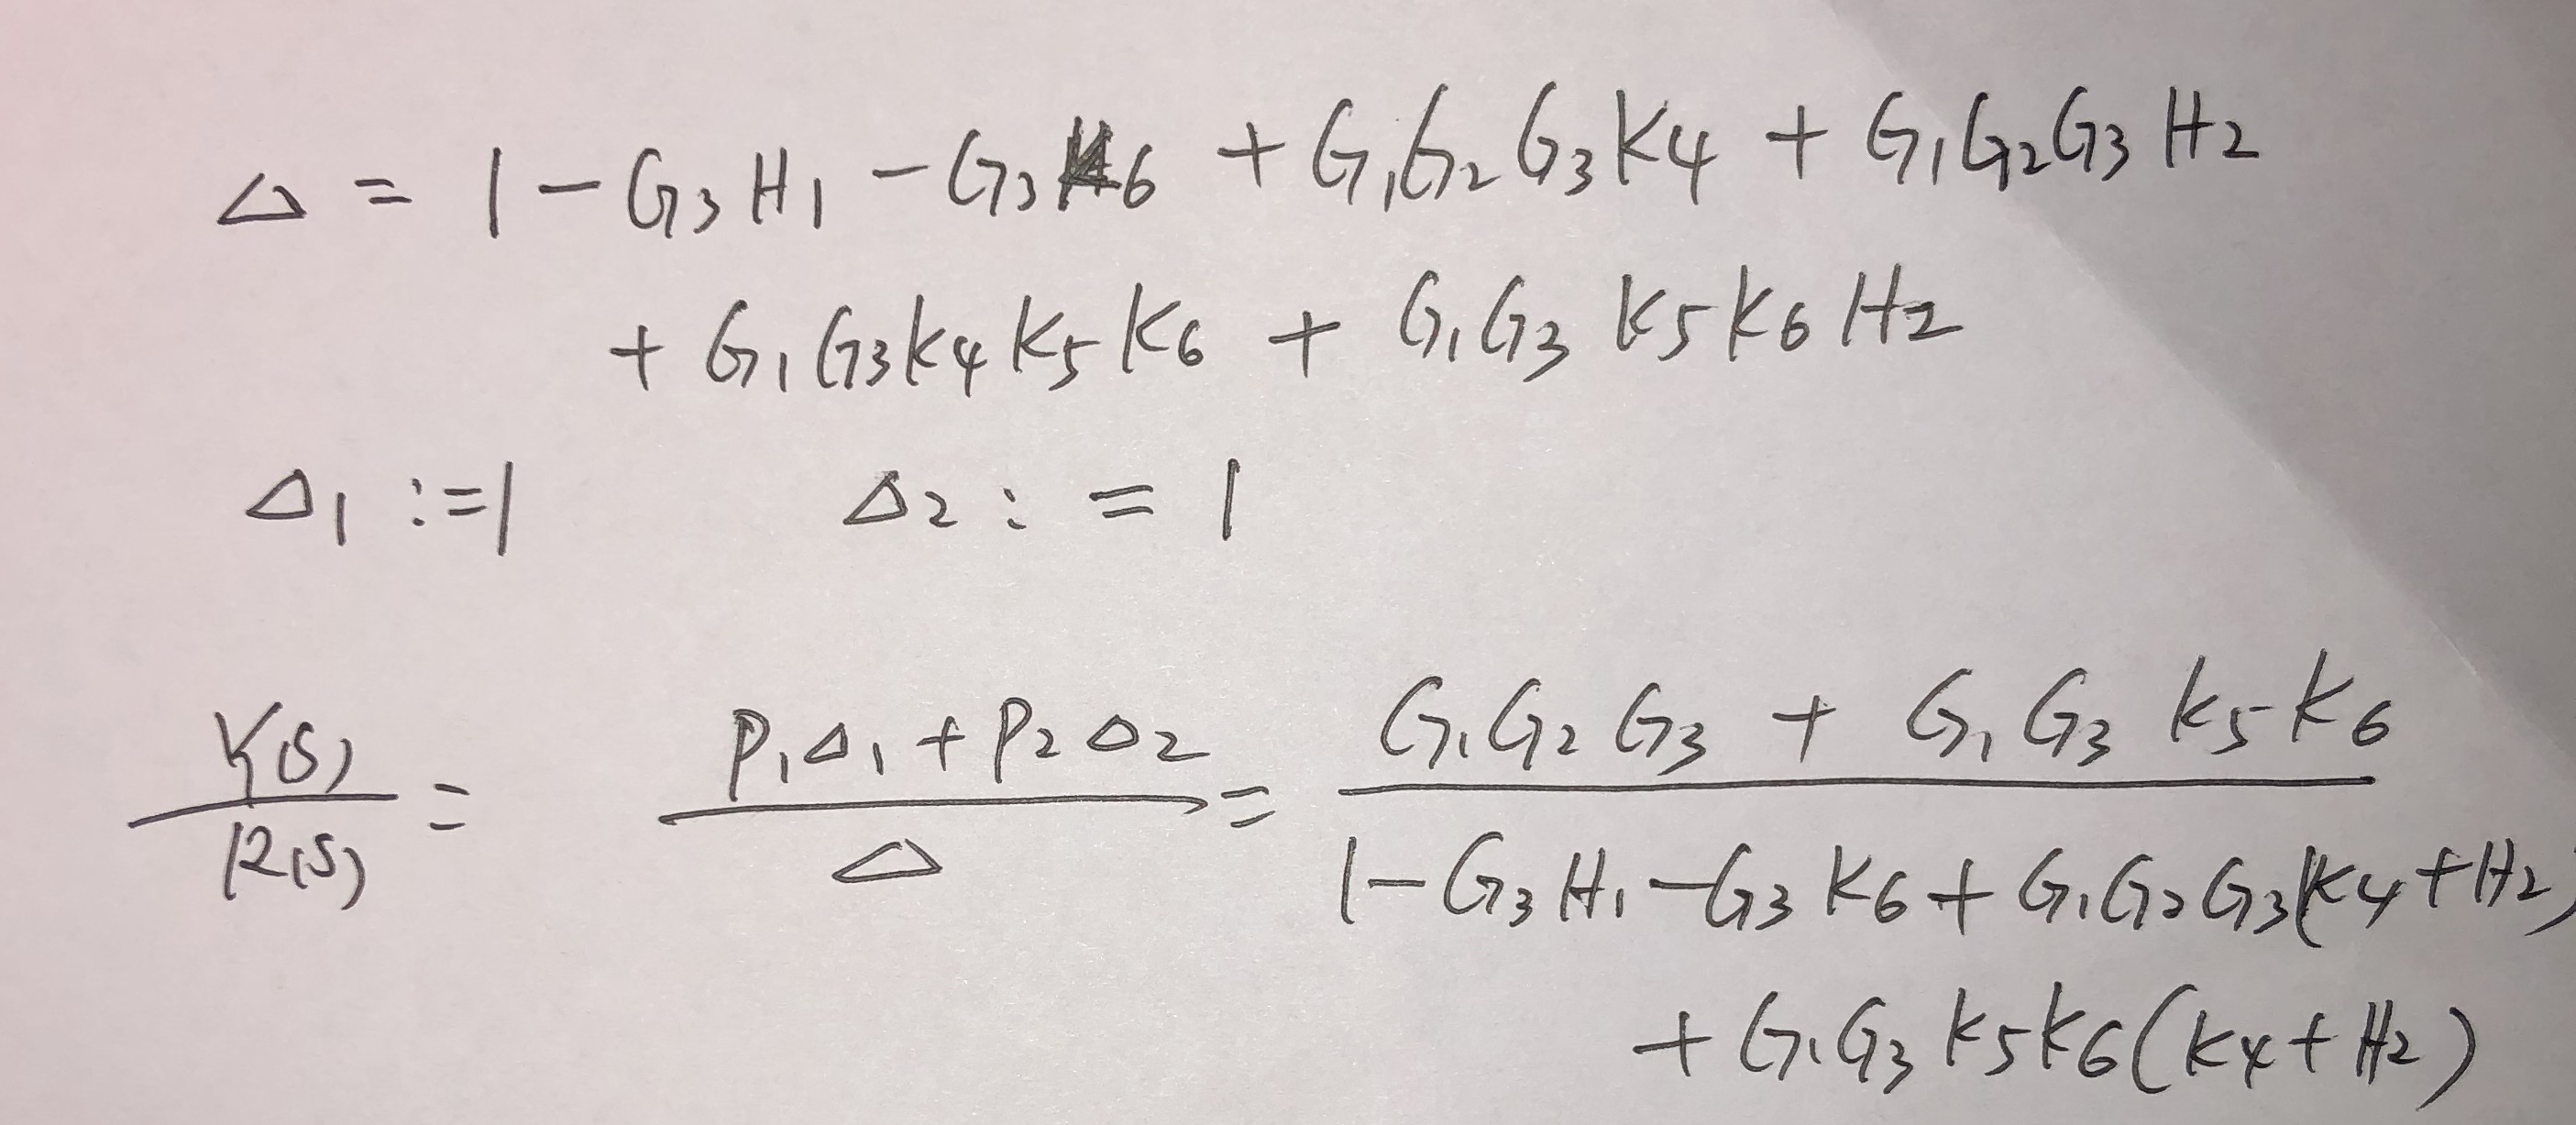 Δ = 1 - G₃H₁ - G₃K6 + G₁G₂G₃K4 + G₁G₂G₃H₂
+ G₁G₃K4K5K6 + G₁G₃K5K6H₂
Δ₁ := 1 Δ₂ := 1
Y(s)/R(s) = (P₁Δ₁ + P₂Δ₂)/Δ = (G₁G₂G₃ + G₁G₃K5K6)/(1 - G₃H₁ - G₃K6 + G₁G₂G₃(K4 + H₂)
+ G₁G₃K5K6(K4 + H₂))